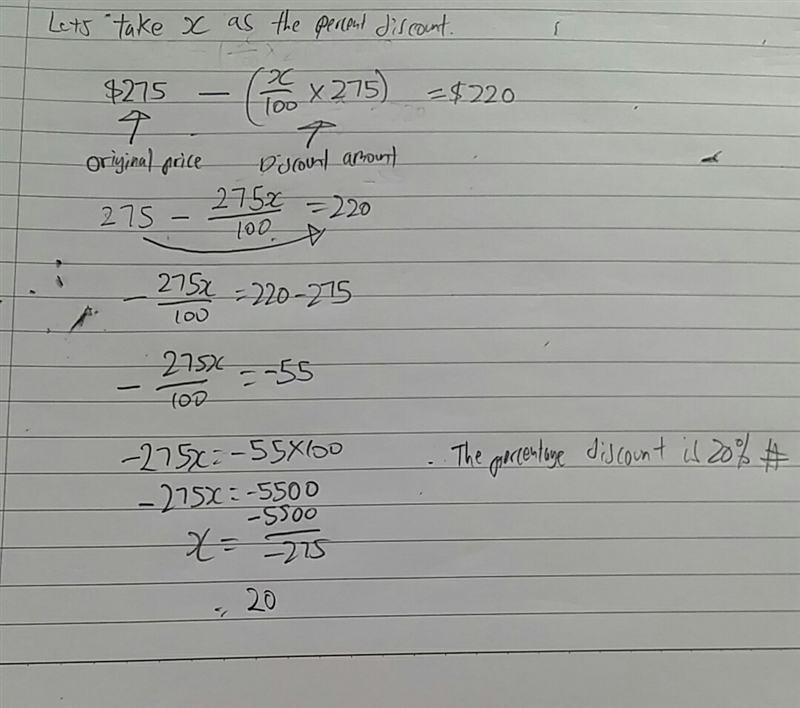 Lets take x as the percent discount.
$275 − (x/100 × 275) = $220
Original price Discount amount
275 − 275x/100 = 220
− 275x/100 = 220 − 275
− 275x/100 = −55
−275x = −55×100
. The percentage discount is 20% #
−275x = −5500
x = −5500/−275
= 20